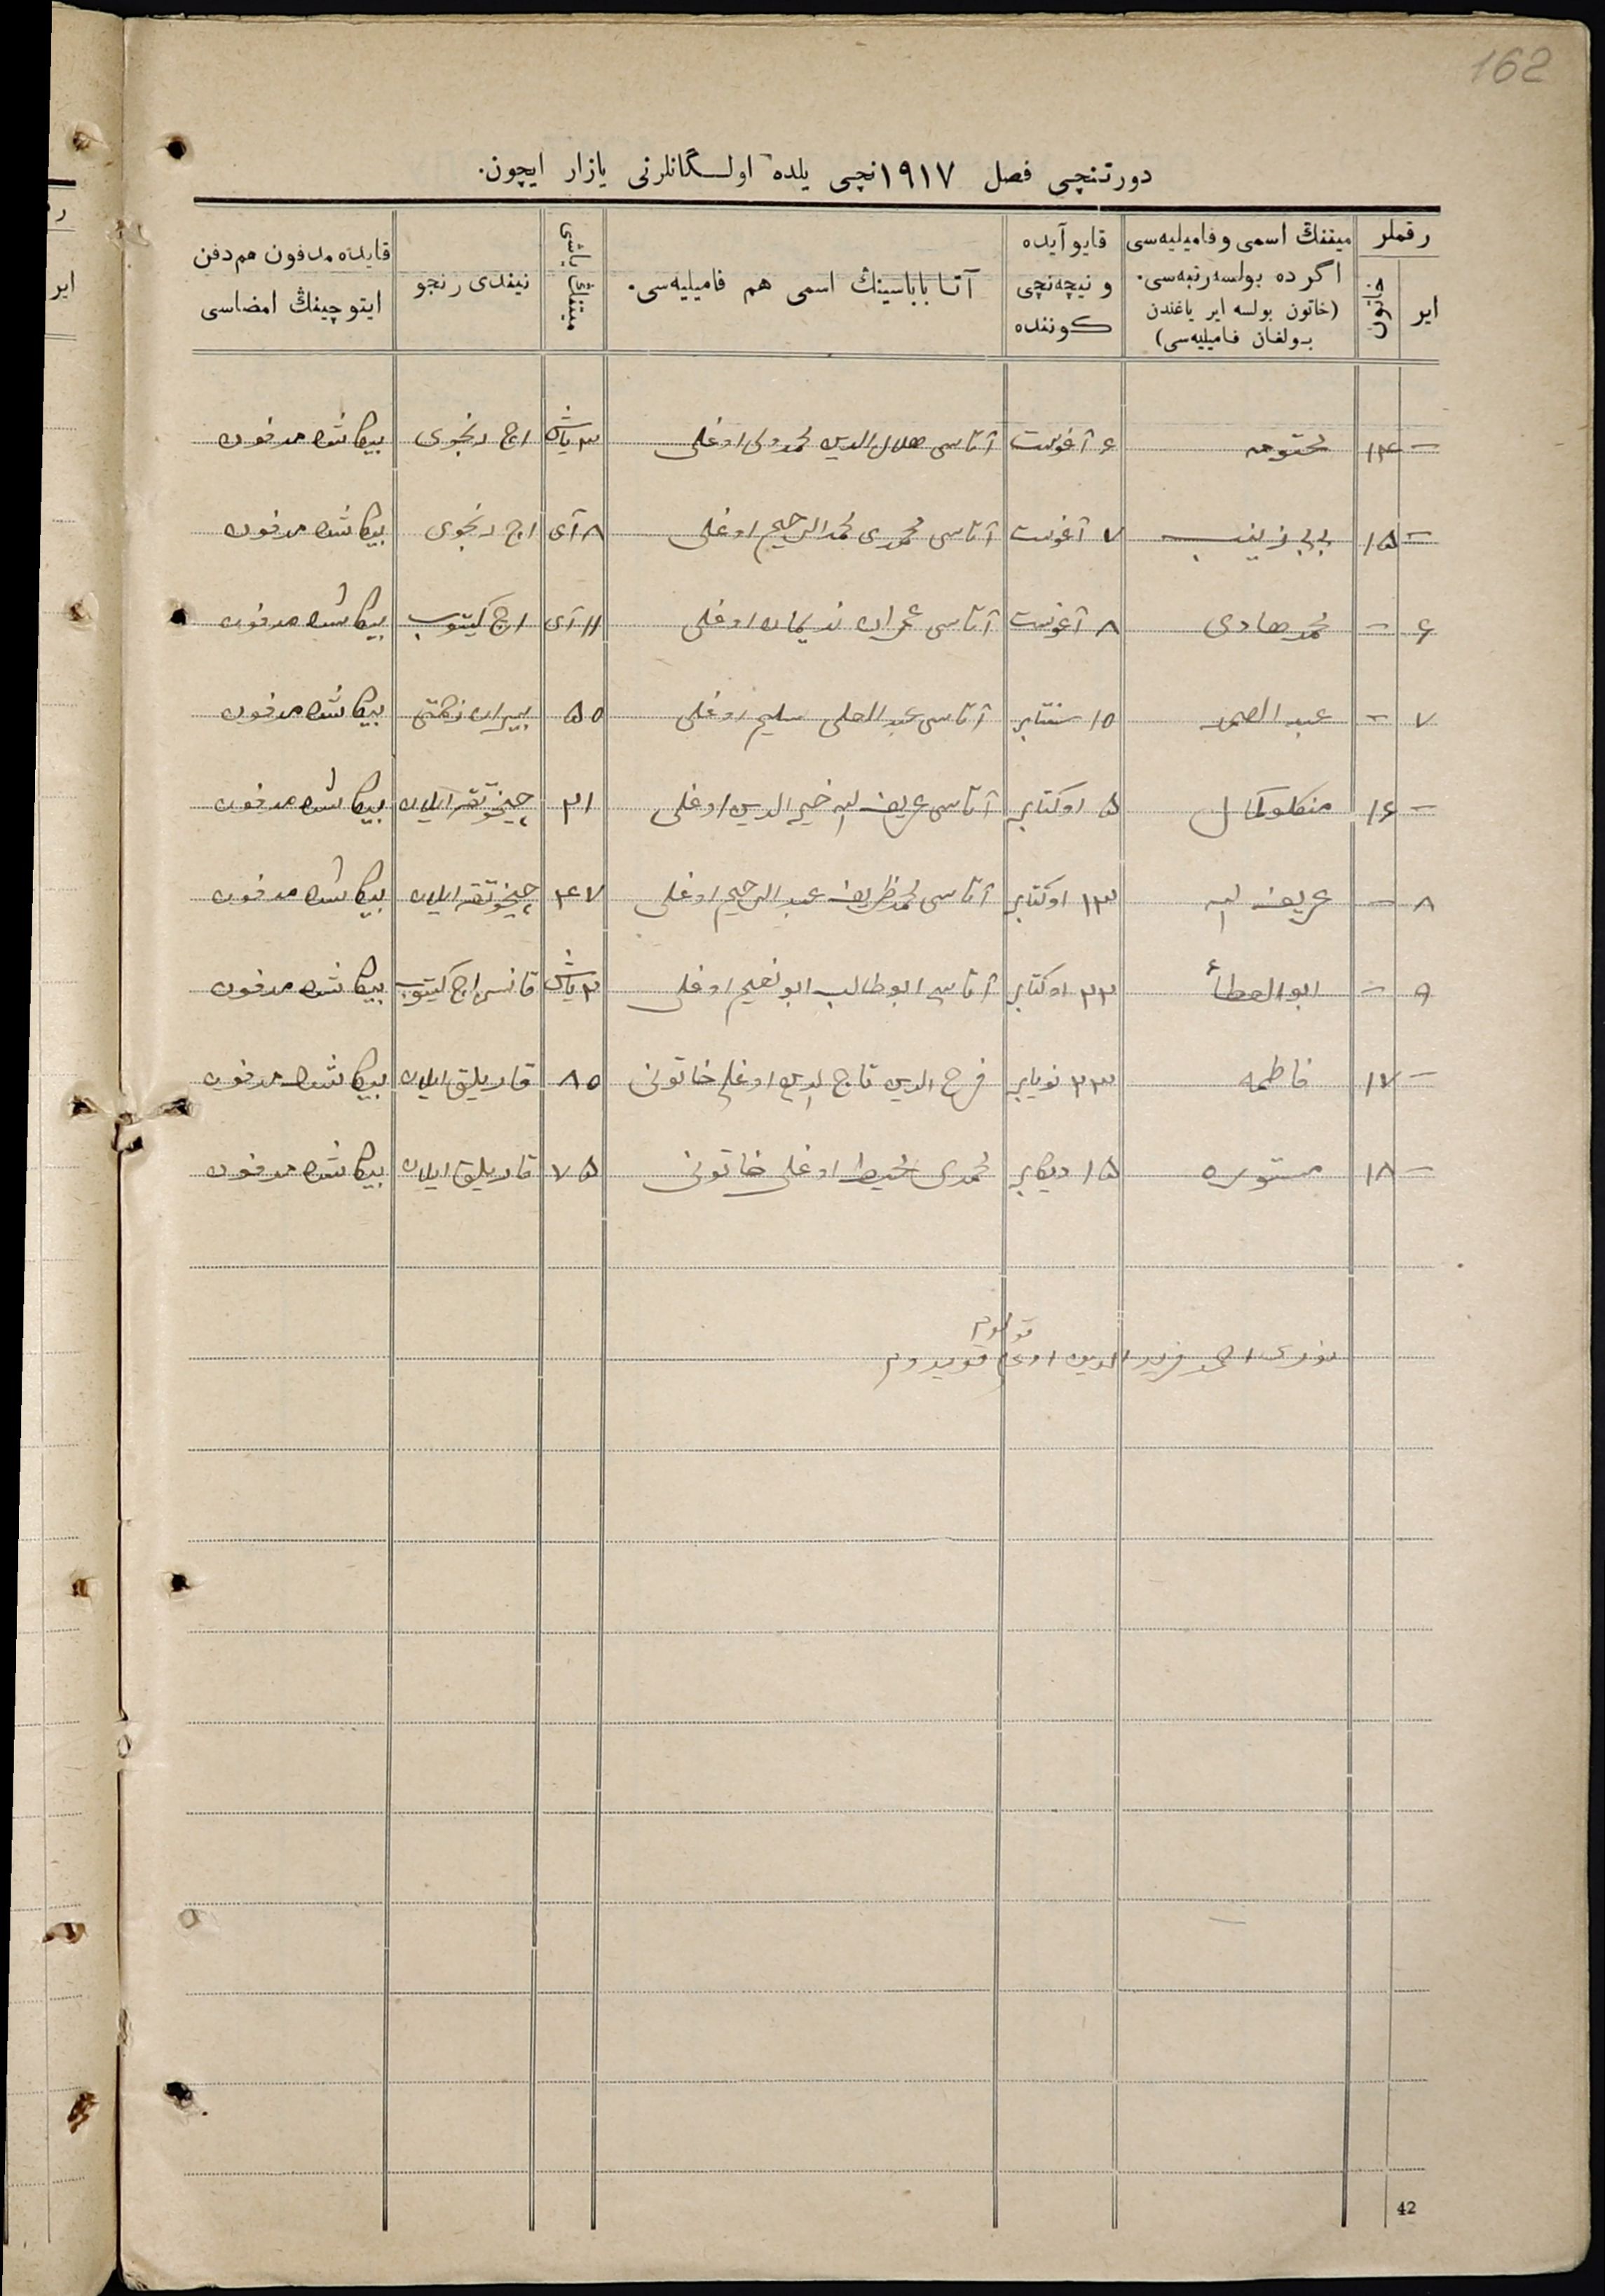 162
دورتنچی فصل ۱۹۱۷نچی یلده اولـگانلرنی یازار ایچون.
رقملر
ایر
خاتون
میتنڭ اسمی و فامیلیه‌سی اگرده بولسه رتبه‌سی.
(خاتون بولسه ایر یاغندن بولغان فامیلیه‌سی)
قایو آیده و نیچه‌نچی کوننده
آتا باباسینڭ اسمی هم فامیلیه‌سی.
میتنڭ یاشی
نیندی رنجو
قایده مدفون هم دفن ایتوچینڭ امضاسی
– ۱۴ مختومه ۶ آغوست آتاسی هلال الدین محمدولی اوغلی ۳ یاش اچ رنجوی بیکاش ده مدفون
– ۱۵ بی بی زینب ۷ آغوست آتاسی محمدی محمدالرحیم اوغلی ۸ آی اچ رنجوی بیکاش ده مدفون
۶ – محمدهادی ۸ آغوست آتاسی عمران نریمان اوغلی ۱۱ آی اچ کیتوب بیکاش ده مدفون
۷ – عبدالصمد ۱۰ سنتابر آتاسی عبدالعلی سلیم اوغلی ۵۵ بیکاش ده مدفون
– ۱۶ منکلوکمال ۵ اوکتابر آتاسی عریف الله خیرالدین اوغلی ۲۱ چیخوتقه ایلان بیکاش ده مدفون
۸ – عریف الله ۱۳ اوکتابر آتاسی محمدظریف عبدالرحیم اوغلی ۴۷ چیخوتقه ایلان بیکاش ده مدفون
۹ – ابوالعطأ ۲۳ اوکتابر آتاسی ابوطالب ابونعیم اوغلی ۲ یاش قانلی اچ کیتوب بیکاش ده مدفون
– ۱۷ فاطمه ۲۳ نویابر فرح الدین تاج الدین اوغلی خاتونی ۸۵ قاریلق ایلان بیکاش ده مدفون
– ۱۸ مستوره ۱۵ دیکابر محمدی محیط اوغلی خاتونی ۷۵ قاریلق ایلان بیکاش ده مدفون
قولوم
فریدالدین اوغلی قویدوم
42